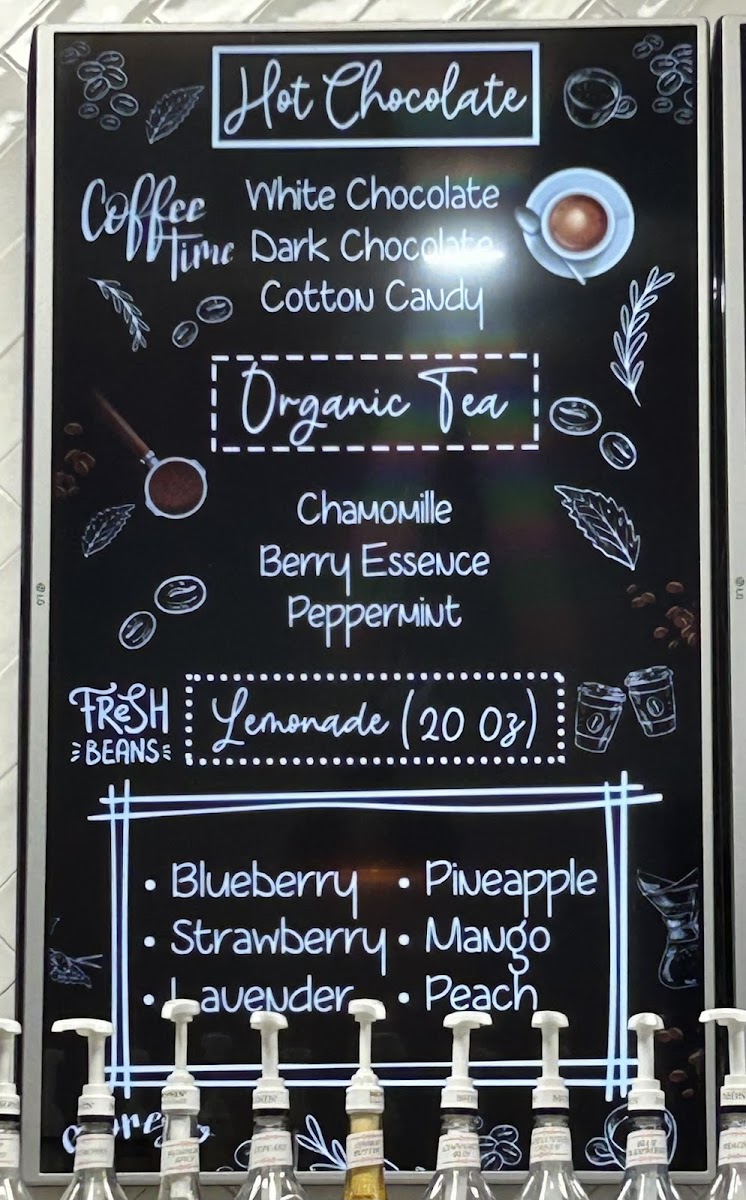 Hot Chocolate
Coffee
Time
White Chocolate
Dark Chocolate
Cotton Candy
Organic Tea
Chamomille
Berry Essence
Peppermint
FReSH
BEANS
Lemonade (20 Oz)
• Blueberry
• Strawberry
• Lavender
• Pineapple
• Mango
• Peach
LG
LG